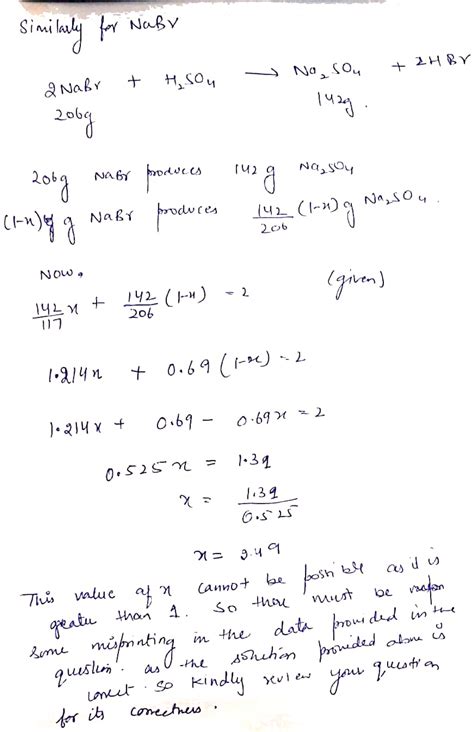 Similarly for NaBr
2NaBr + H₂SO₄ → Na₂SO₄ + 2HBr
206g 142g.
206g NaBr produces 142 g Na₂SO₄
(1-x) g NaBr produces 142/206 (1-x) g Na₂SO₄.
Now,
142/117 x + 142/206 (1-x) = 2 (given)
1.214x + 0.69 (1-x) = 2
1.214x + 0.69 - 0.69x = 2
0.525x = 1.39
x = 1.39/0.525
x = 2.49
This value of x cannot be possible as it is
greater than 1. So there must be
some misprinting in the data provided in the
question. as the solution provided above is
correct. So kindly review your question
for its correctness.